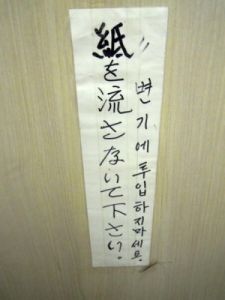 紙を流さないて下さい。
〃 변기에 투입하지마세요.